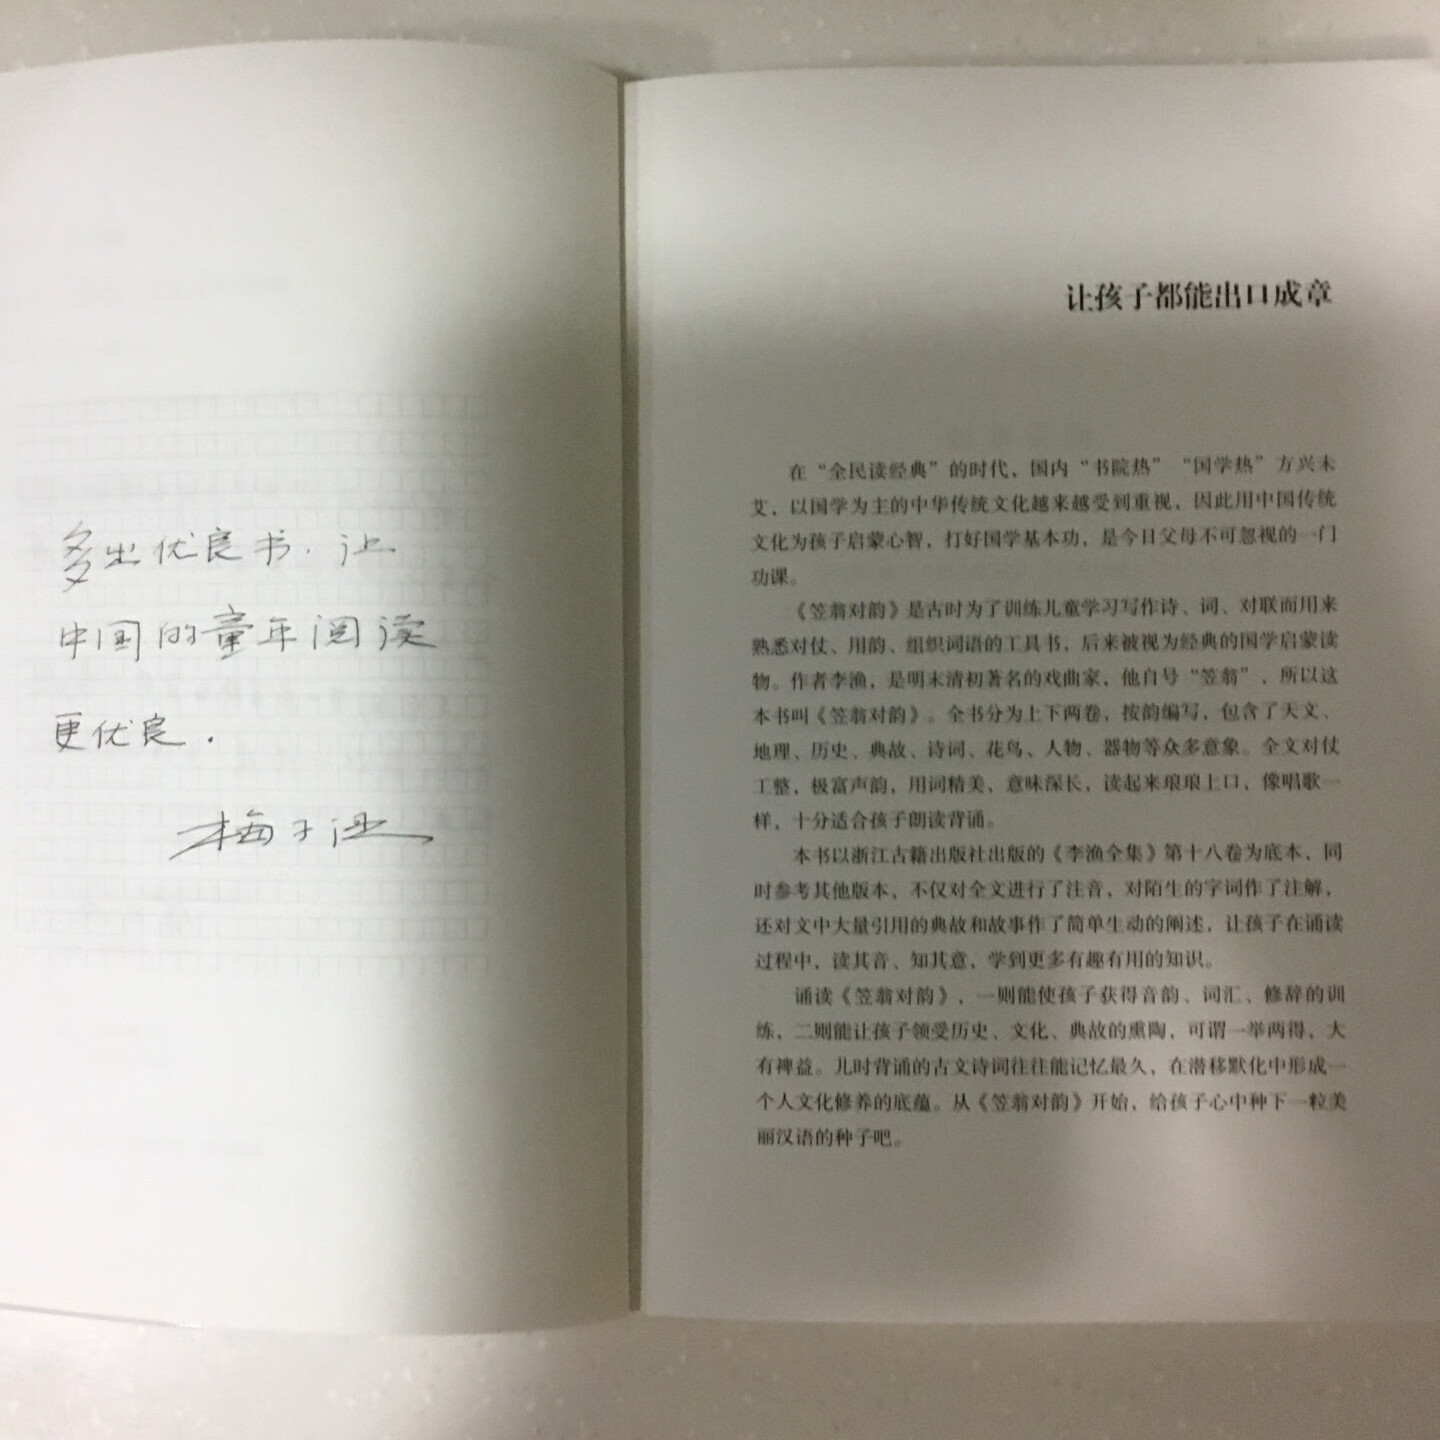 多出优良书，让
中国的童年阅读
更优良．
梅子涵
让孩子都能出口成章
在“全民读经典”的时代，国内“书院热”“国学热”方兴未
艾，以国学为主的中华传统文化越来越受到重视，因此用中国传统
文化为孩子启蒙心智，打好国学基本功，是今日父母不可忽视的一门
功课。
《笠翁对韵》是古时为了训练儿童学习写作诗、词、对联而用来
熟悉对仗、用韵、组织词语的工具书，后来被视为经典的国学启蒙读
物。作者李渔，是明末清初著名的戏曲家，他自号“笠翁”，所以这
本书叫《笠翁对韵》。全书分为上下两卷，按韵编写，包含了天文、
地理、历史、典故、诗词、花鸟、人物、器物等众多意象。全文对仗
工整，极富声韵，用词精美，意味深长，读起来琅琅上口，像唱歌一
样，十分适合孩子朗读背诵。
本书以浙江古籍出版社出版的《李渔全集》第十八卷为底本，同
时参考其他版本，不仅对全文进行了注音，对陌生的字词作了注解，
还对文中大量引用的典故和故事作了简单生动的阐述，让孩子在诵读
过程中，读其音、知其意，学到更多有趣有用的知识。
诵读《笠翁对韵》，一则能使孩子获得音韵、词汇、修辞的训
练，二则能让孩子领受历史、文化、典故的熏陶，可谓一举两得，大
有裨益。儿时背诵的古文诗词往往能记忆最久，在潜移默化中形成一
个人文化修养的底蕴。从《笠翁对韵》开始，给孩子心中种下一粒美
丽汉语的种子吧。